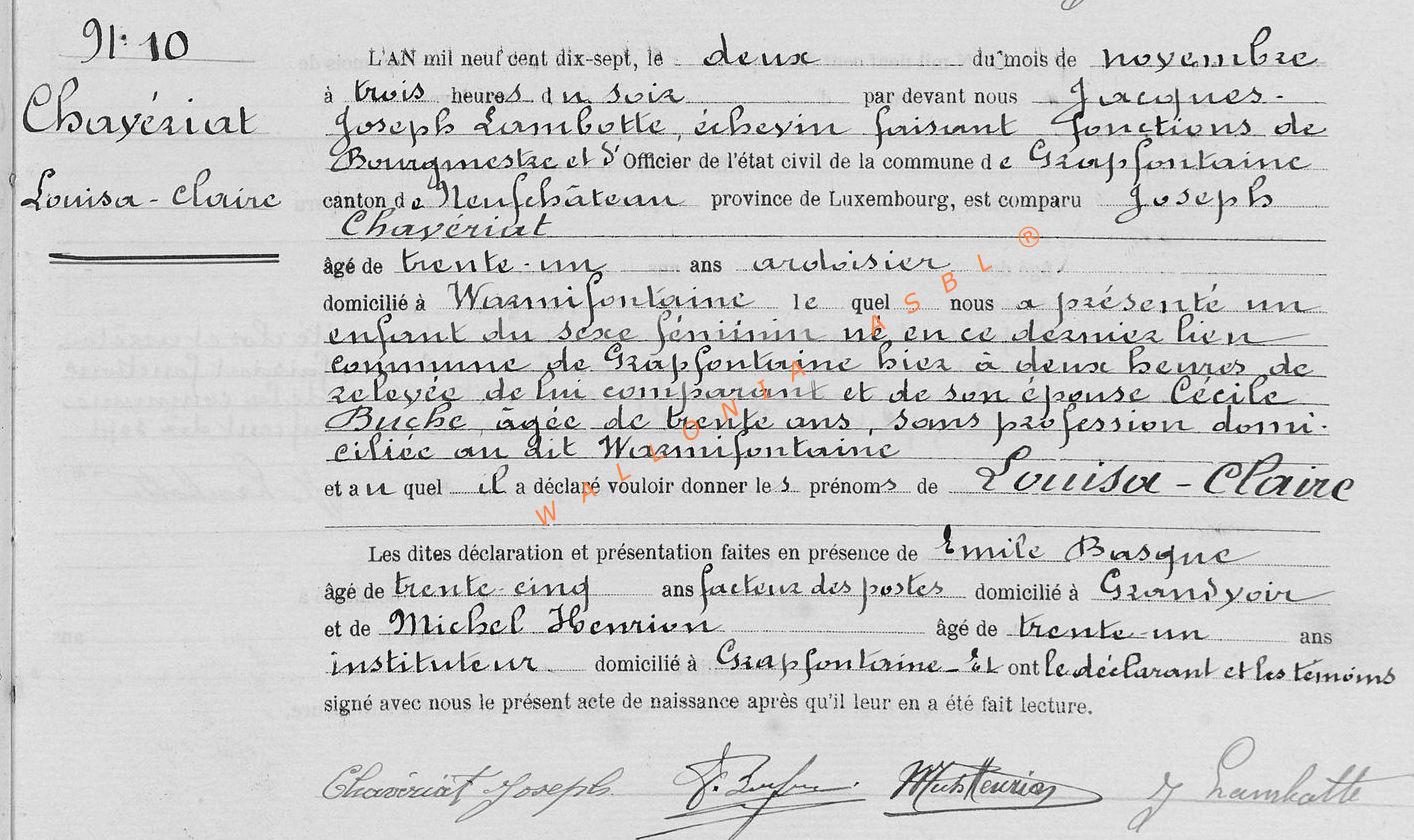 N° 10
Chavériat
Louisa - Claire
L'AN mil neuf cent dix-sept, le deux du mois de novembre
à trois heures du soir par devant nous Jacques-
Joseph Lambotte, échevin faisant fonctions de
Bourgmestre et d'Officier de l'état civil de la commune de Grapfontaine
canton de Neufchâteau province de Luxembourg, est comparu Joseph
Chavériat
âgé de trente-un ans ardoisier
domicilié à Warmifontaine le quel nous a présenté un
enfant du sexe féminin né en ce dernier lieu
commune de Grapfontaine hier à deux heures de
relevée, de lui comparant et de son épouse Cécile
Buche, âgée de trente ans, sans profession domi-
ciliée au dit Warmifontaine
et au quel il a déclaré vouloir donner les prénoms de Louisa - Claire
Les dites déclaration et présentation faites en présence de Emile Basque
âgé de trente-cinq ans facteur des postes domicilié à Grandvoir
et de Michel Henrion âgé de trente-un ans
instituteur domicilié à Grapfontaine - Et ont le déclarant et les témoins
signé avec nous le présent acte de naissance après qu'il leur en a été fait lecture.
Chavériat Joseph Mich Henrion J Lambotte
WALLONIA ASBL ®